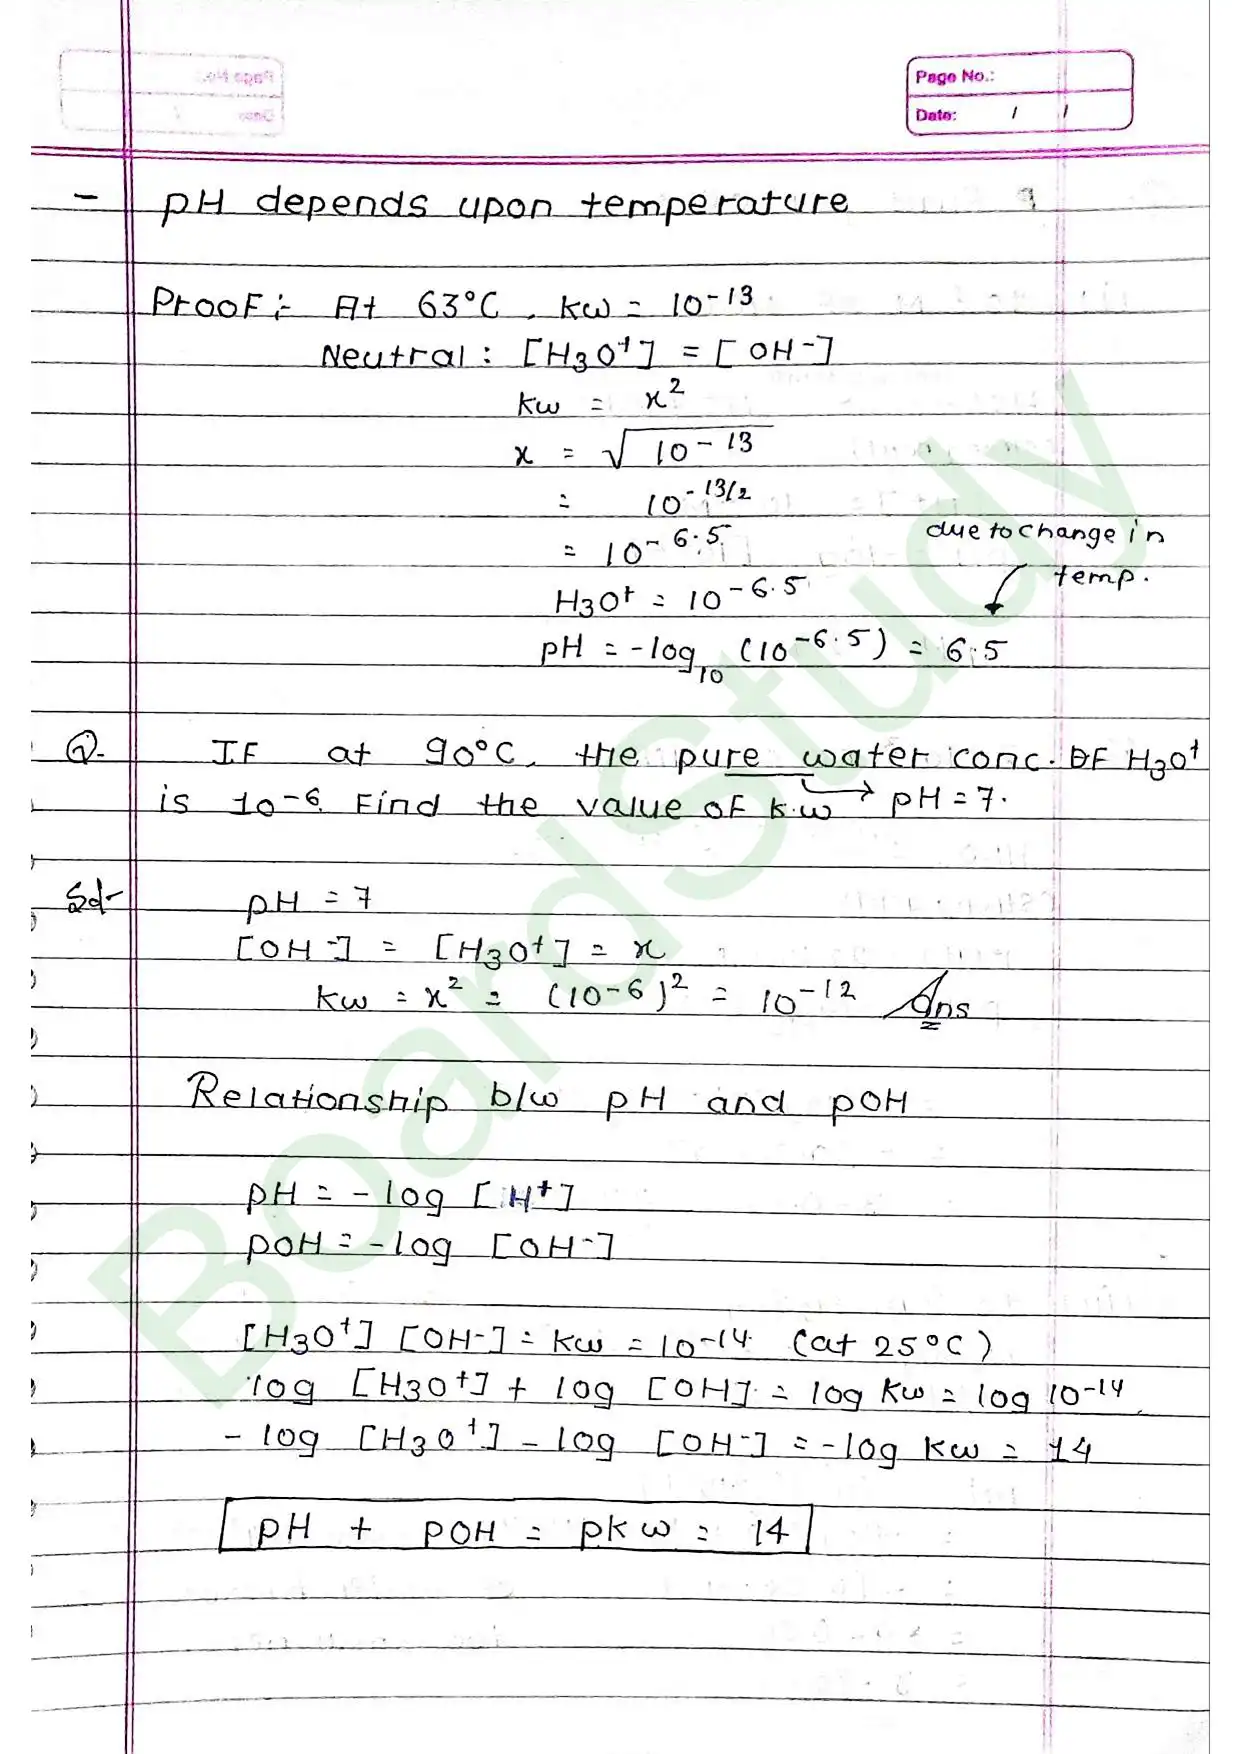 Page No.:
Date: / /
- pH depends upon temperature
Proof:- At 63°C, Kw = 10⁻¹³
Neutral : [H₃O⁺] = [OH⁻]
Kw = x²
x = √10⁻¹³
= 10⁻¹³/²
= 10⁻⁶·⁵
due to change in
temp.
H₃O⁺ = 10⁻⁶·⁵
pH = -log₁₀ (10⁻⁶·⁵) = 6.5
Q. If at 90°C, the pure water conc. of H₃O⁺
is 10⁻⁶. Find the value of k.w → pH = 7.
Sol- pH = 7
[OH⁻] = [H₃O⁺] = x
Kw = x² = (10⁻⁶)² = 10⁻¹² Ans
Relationship b/w pH and pOH
pH = -log [H⁺]
pOH = -log [OH⁻]
[H₃O⁺] [OH⁻] = Kw = 10⁻¹⁴ (at 25°C)
log [H₃O⁺] + log [OH] = log Kw = log 10⁻¹⁴
- log [H₃O⁺] - log [OH⁻] = -log Kw = 14
pH + pOH = pKw = 14
BoardStudy